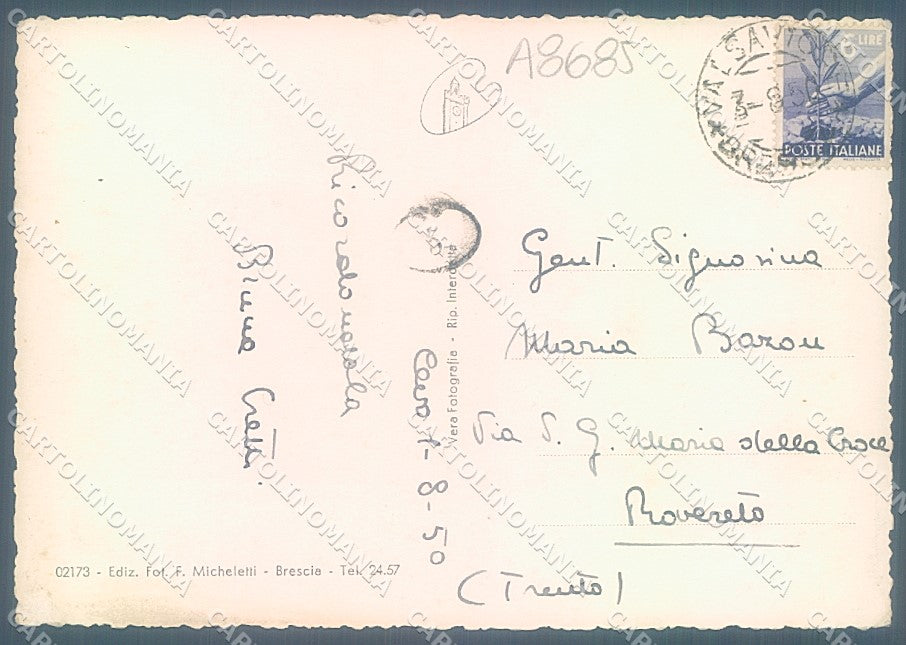 A8685
6 LIRE
POSTE ITALIANE
VALSAVIO
BRESCIA
Ricordandola
Bruna
Cevo 1-8-50
Vera Fotografia - Rip. Interdetta
Gent. Signorina
Maria Bazou
Via S. G. Maria della Croce
Rovereto
(Trento)
02173 - Ediz. Fot. F. Micheletti - Brescia - Tel. 24.57
CARTOLINOMANIA